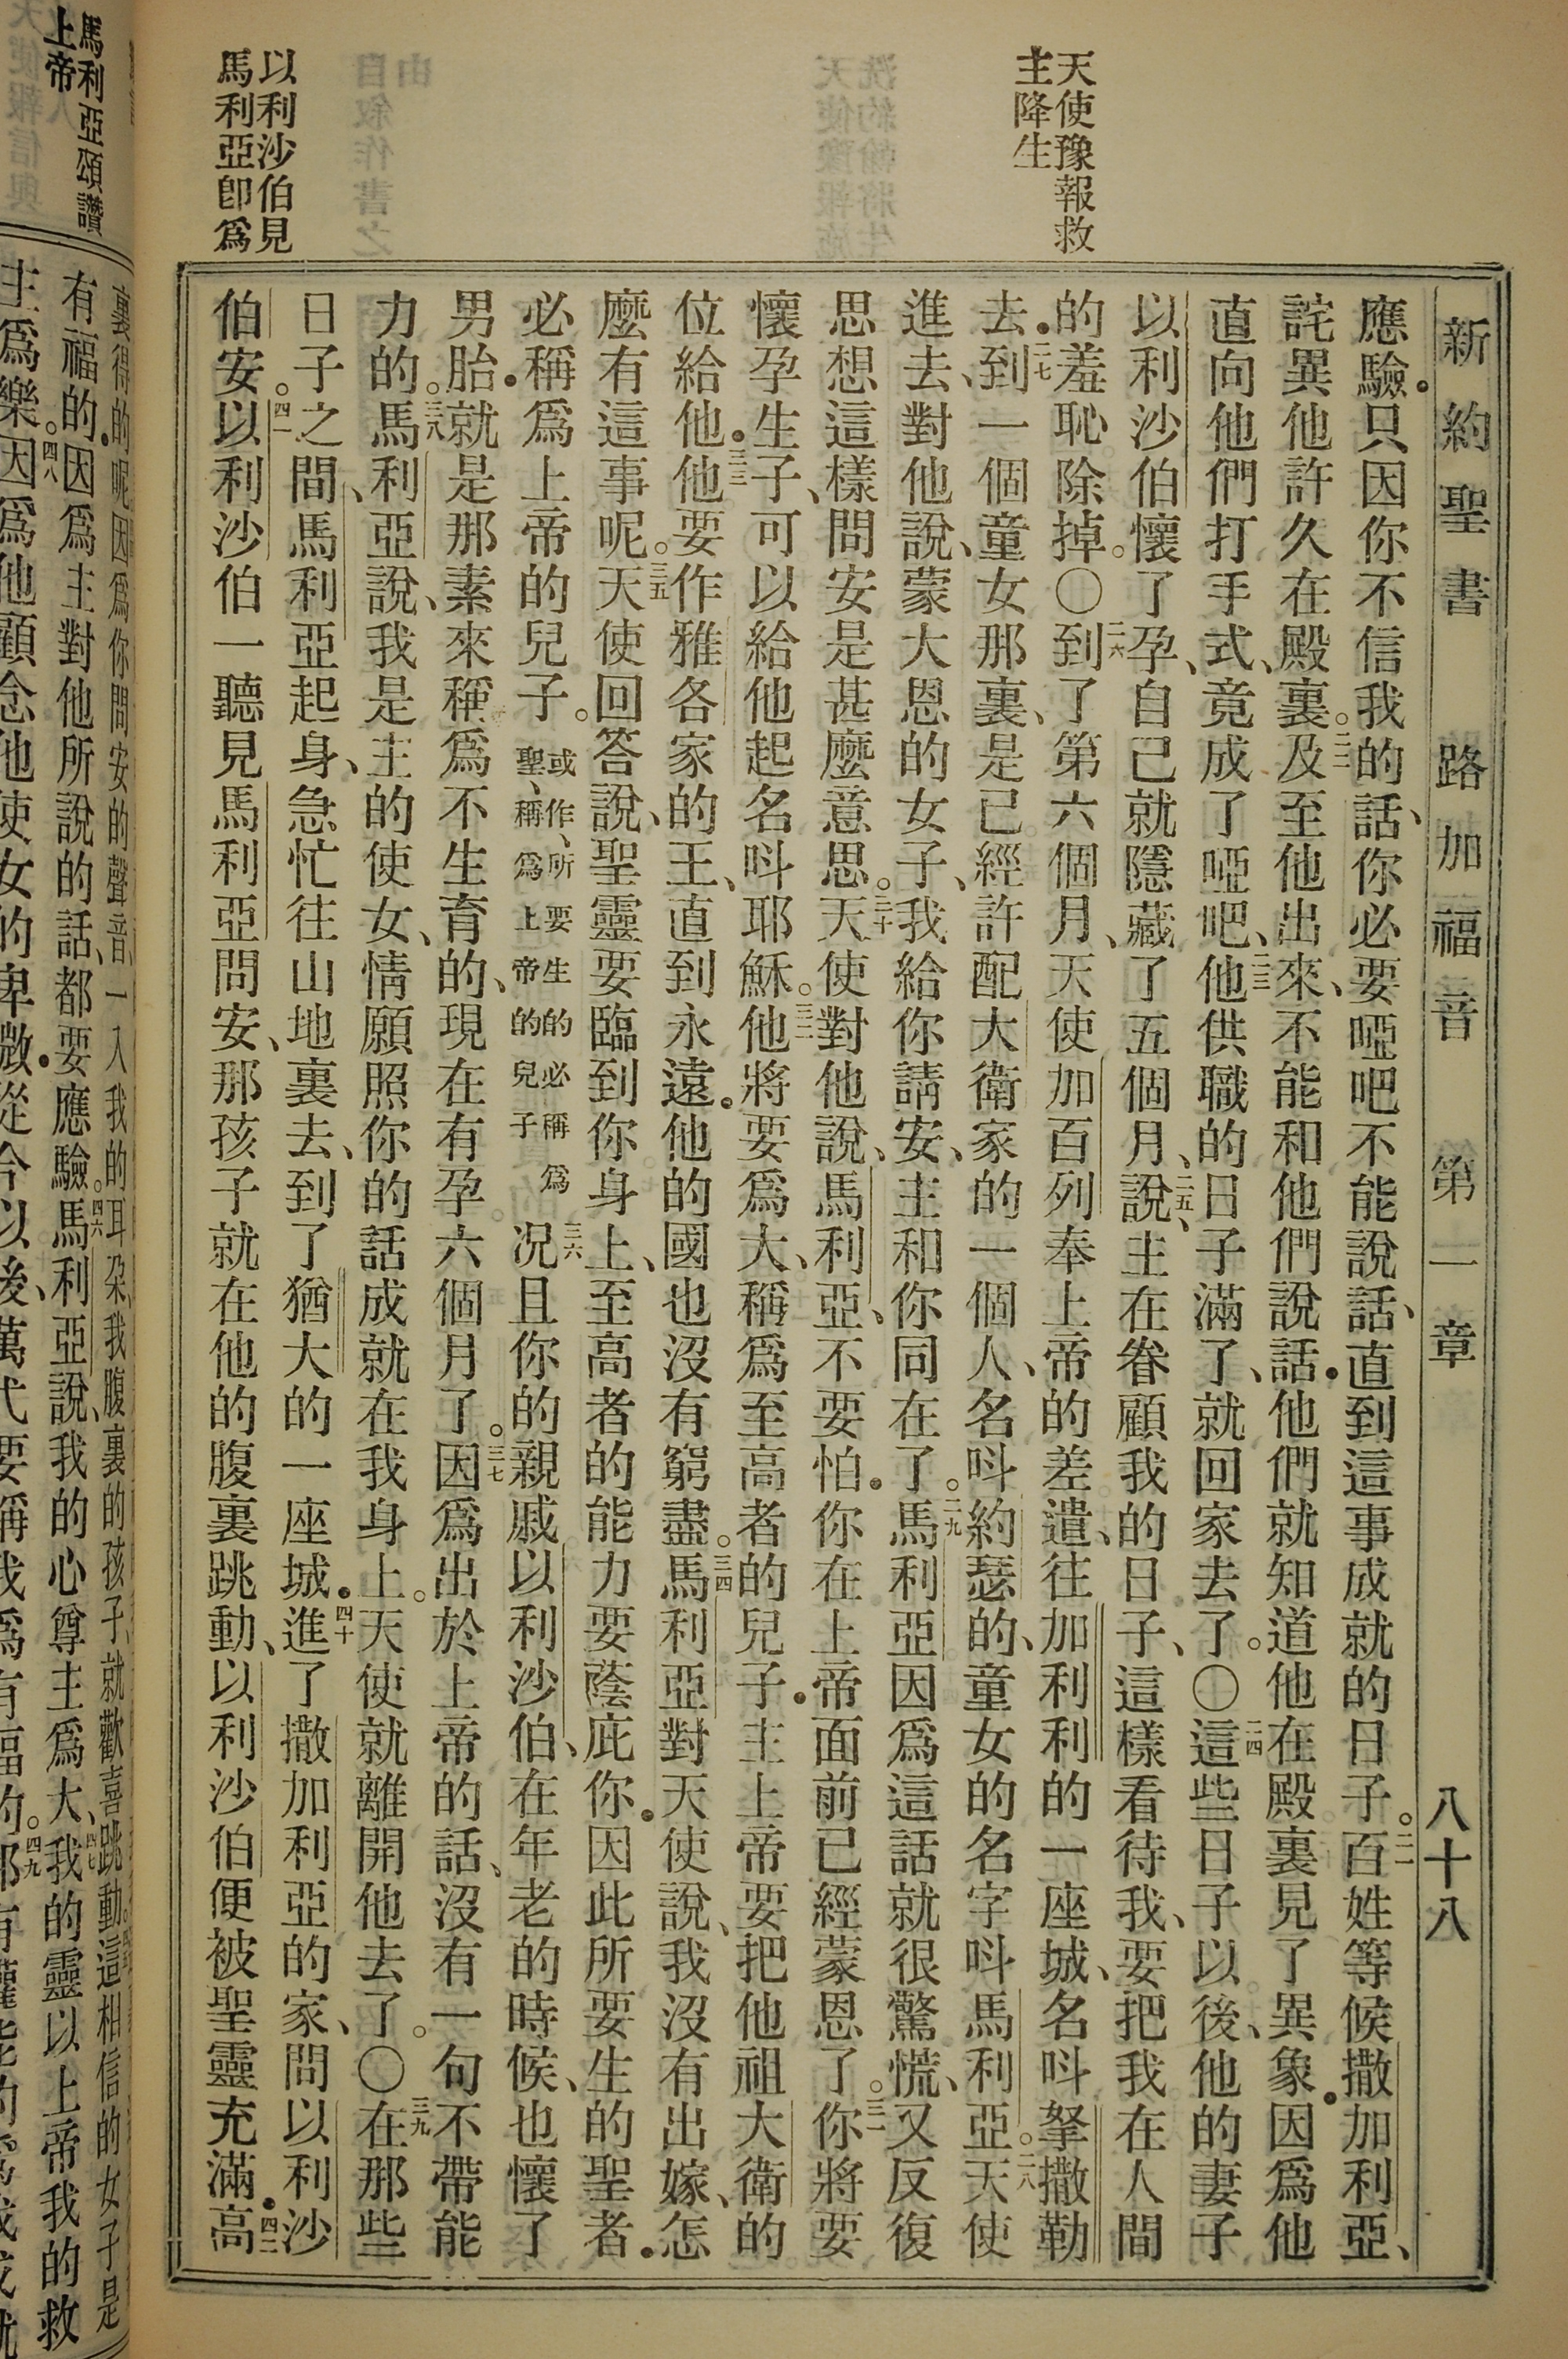 新約聖書 路加福音 第一章 八十八
天使豫報救
主降生
以利沙伯見
馬利亞卽爲
應驗．只因你不信我的話、你必要啞吧不能說話、直到這事成就的日子。二一百姓等候撒加利亞、
詫異他許久在殿裏。二二及至他出來、不能和他們說話．他們就知道他在殿裏見了異象．因爲他
直向他們打手式、竟成了啞吧、二三他供職的日子滿了、就回家去了。〇二四這些日子以後、他的妻子
以利沙伯懷了孕、自己就隱藏了五個月、二五說、主在眷顧我的日子、這樣看待我、要把我在人間
的羞恥除掉。〇二六到了第六個月、天使加百列奉上帝的差遣、往加利利的一座城、名呌拏撒勒
去．二七到一個童女那裏、是已經許配大衛家的一個人、名呌約瑟的、童女的名字呌馬利亞。二八天使
進去、對他說、蒙大恩的女子、我給你請安、主和你同在了。二九馬利亞因爲這話就很驚慌、又反復
思想這樣問安是甚麼意思。三十天使對他說、馬利亞、不要怕．你在上帝面前已經蒙恩了。三一你將要
懷孕生子、可以給他起名呌耶穌。三二他將要爲大、稱爲至高者的兒子．主上帝要把他祖大衛的
位給他．三三他要作雅各家的王、直到永遠．他的國也沒有窮盡。三四馬利亞對天使說、我沒有出嫁、怎
麼有這事呢。三五天使回答說、聖靈要臨到你身上、至高者的能力要蔭庇你．因此所要生的聖者．
必稱爲上帝的兒子。或作、所要生的必稱爲聖、稱爲上帝的兒子 三六况且你的親戚以利沙伯、在年老的時候、也懷了
男胎．就是那素來稱爲不生育的、現在有孕六個月了。三七因爲出於上帝的話、沒有一句不帶能
力的。三八馬利亞說、我是主的使女、情願照你的話成就在我身上。天使就離開他去了。〇三九在那些
日子之間、馬利亞起身、急忙往山地裏去、到了猶大的一座城．四十進了撒加利亞的家、問以利沙
伯安。四一以利沙伯一聽見馬利亞問安、那孩子就在他的腹裏跳動、以利沙伯便被聖靈充滿．四二高
馬利亞頌讚
上帝
裏得的呢因爲你問安的聲音、一入我的耳朶、我腹裏的孩子、就歡喜跳動。這相信的女子是
有福的．因爲主對他所說的話、都要應驗。四六馬利亞說、我的心尊主爲大、四七我的靈以上帝我的救
主爲樂。四八因爲他顧念他使女的卑微．從今以後、萬代要稱我爲有福的。四九那有權能的爲我成就